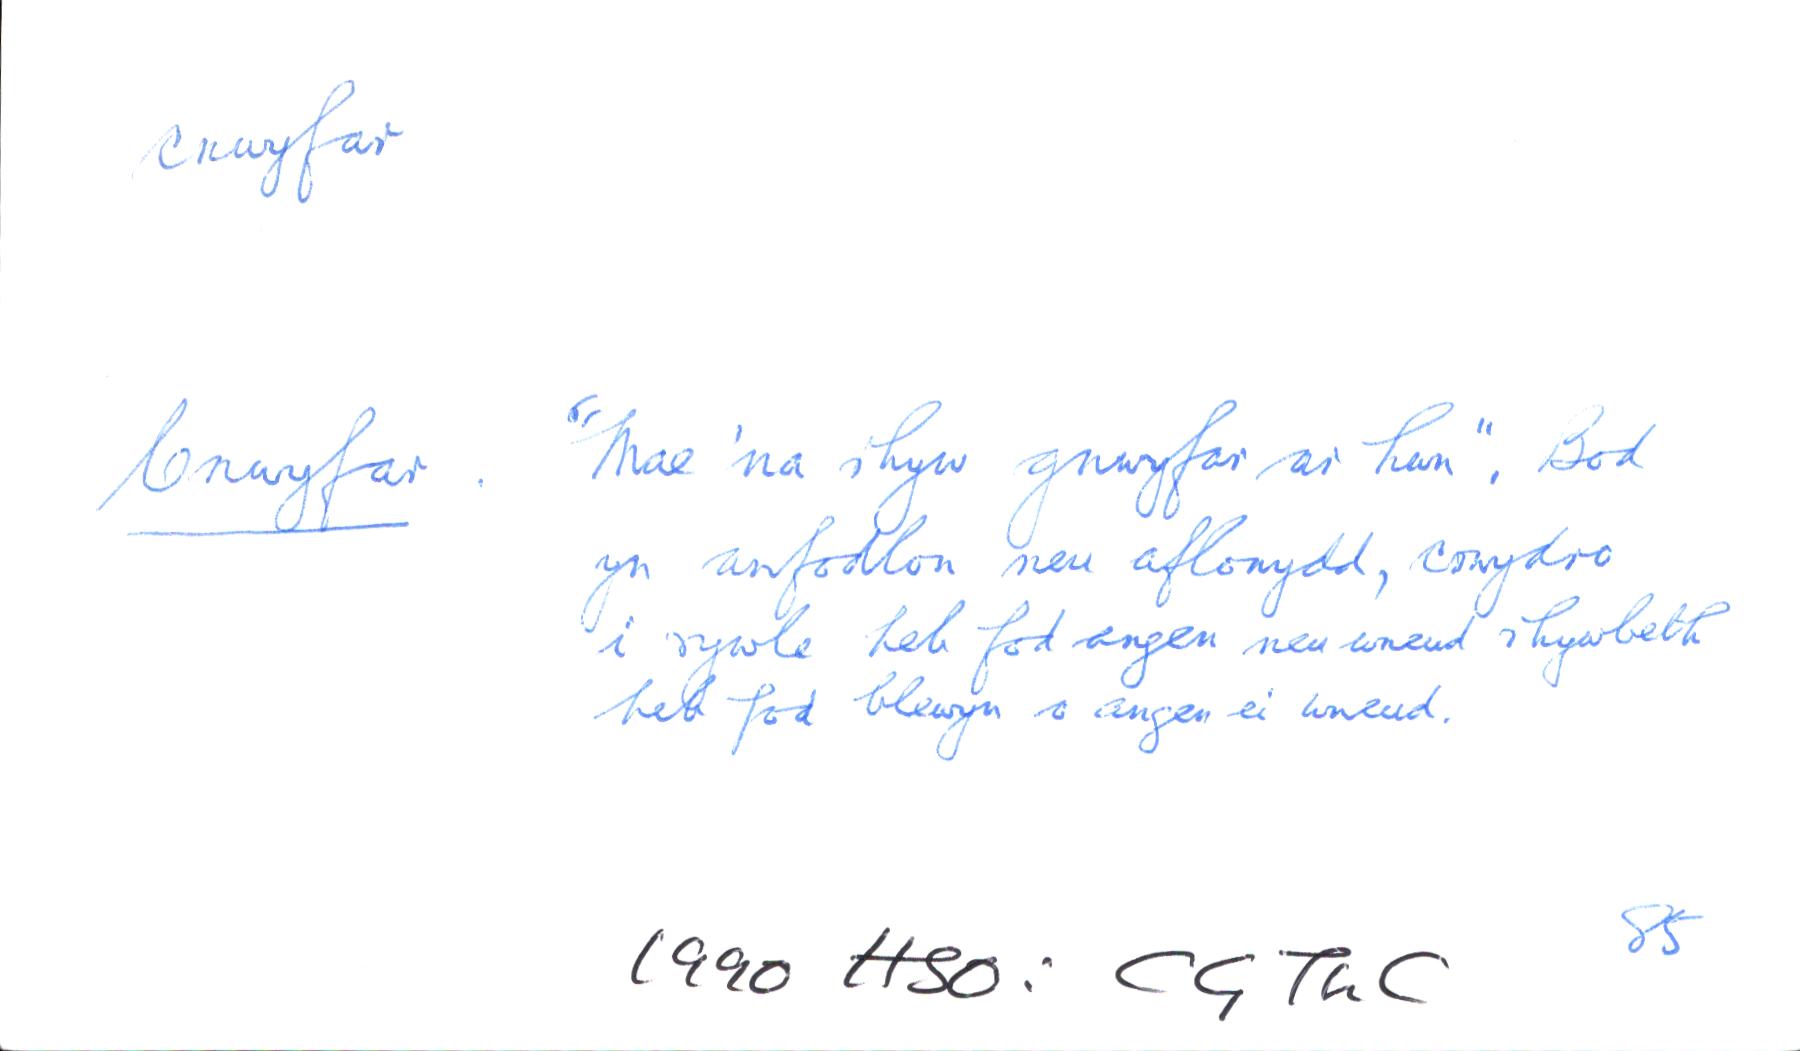 cnwyfar
Cnwyfar. "Mae 'na rhyw gnwyfar ar hwn". Bod
yn anfodlon neu aflonydd, crwydro
i rywle heb fod angen neu wneud rhywbeth
heb fod blewyn o angen ei wneud.
85
1990 HSO: CGThC